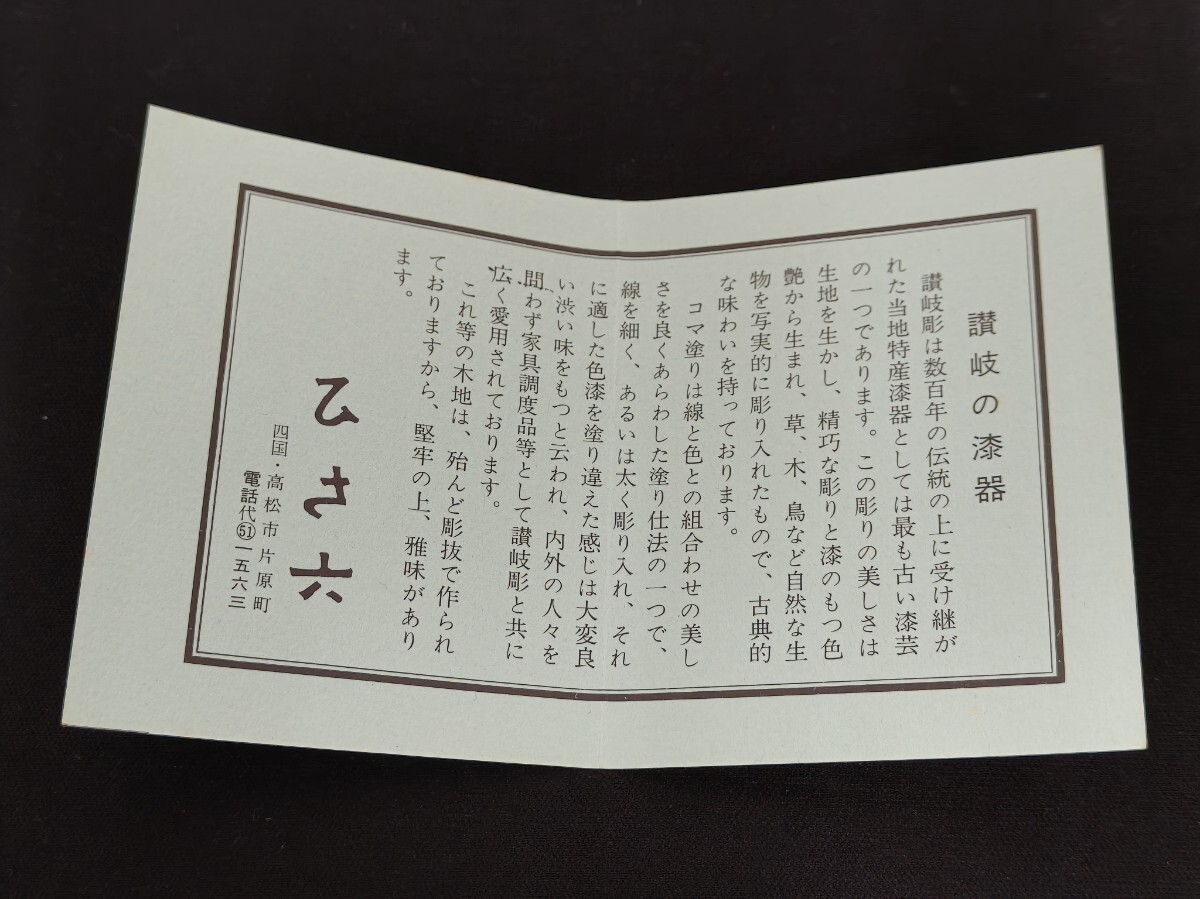 讃岐の漆器
讃岐彫は数百年の伝統の上に受け継が
れた当地特産漆器としては最も古い漆芸
の一つであります。この彫りの美しさは
生地を生かし、精巧な彫りと漆のもつ色
艶から生まれ、草、木、鳥など自然な生
物を写実的に彫り入れたもので、古典的
な味わいを持っております。
コマ塗りは線と色との組合わせの美し
さを良くあらわした塗り仕法の一つで、
線を細く、あるいは太く彫り入れ、それ
に適した色漆を塗り違えた感じは大変良
い渋い味をもつと云われ、内外の人々を
問わず家具調度品等として讃岐彫と共に
広く愛用されております。
これ等の木地は、殆んど彫抜で作られ
ておりますから、堅牢の上、雅味があり
ます。
ひさ六
四国・高松市片原町
電話代㊿一五六三